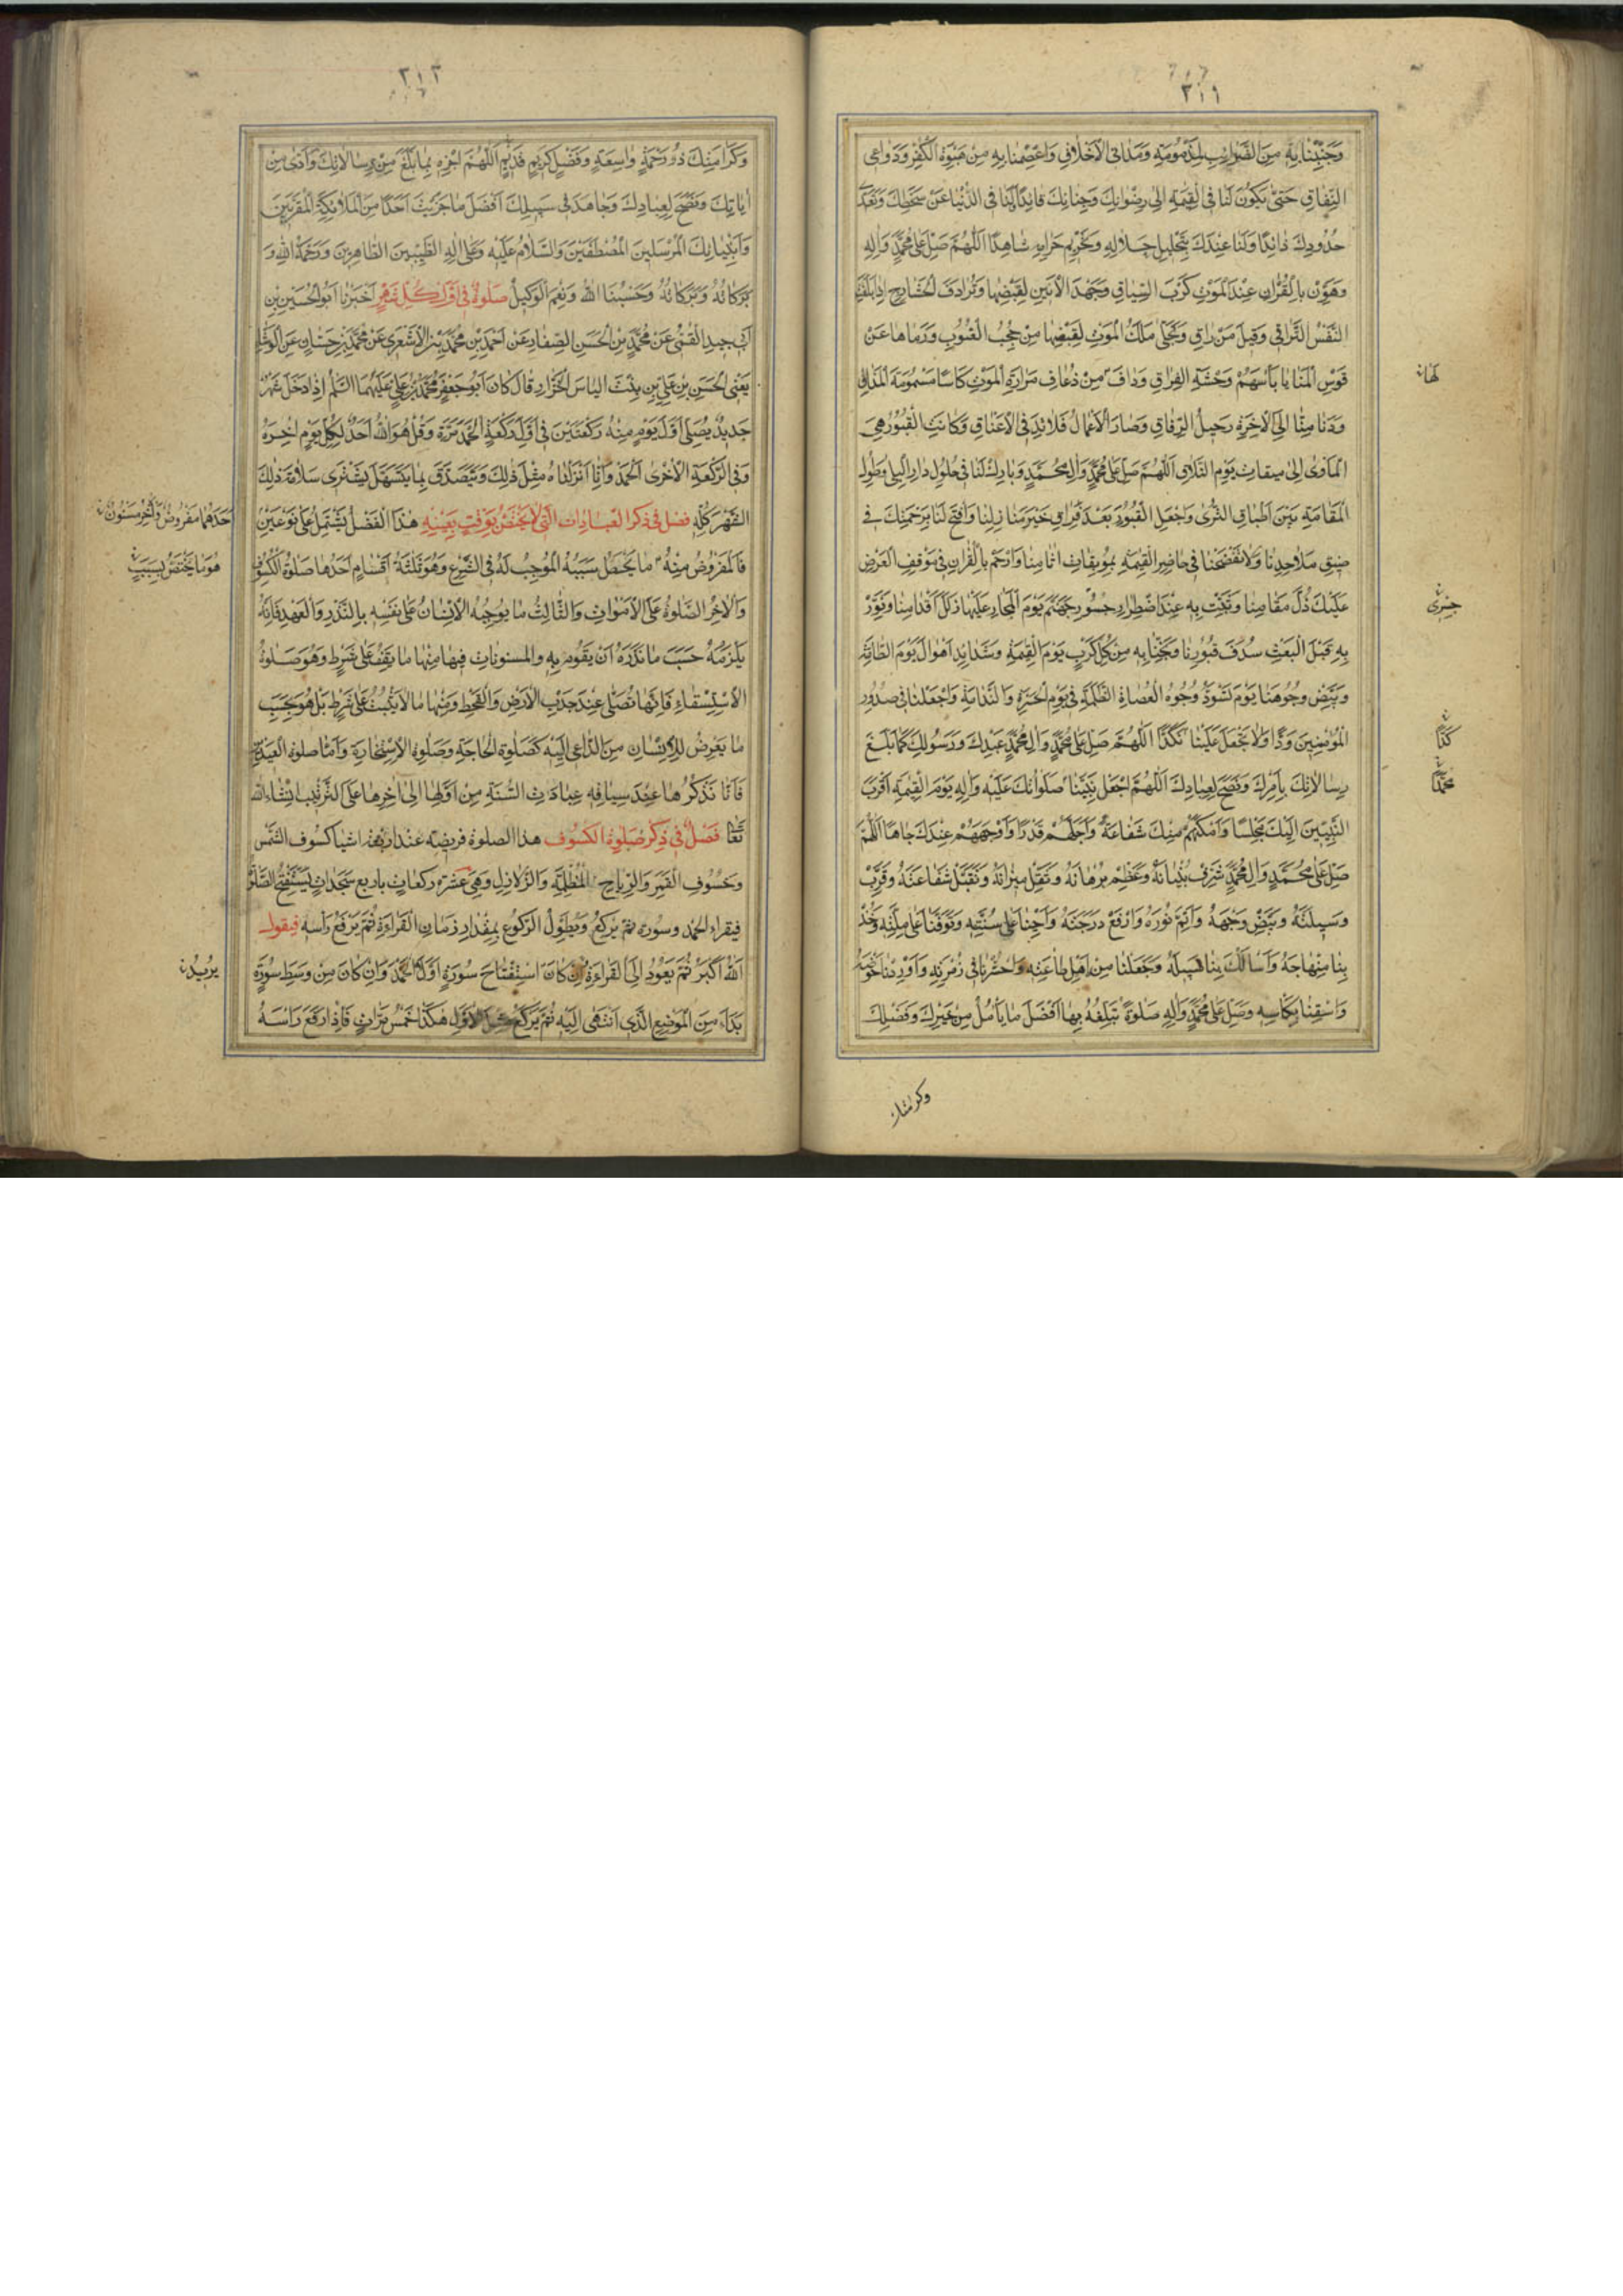 ٣١٩
وَجَنِّبْنا بِهِ مِنَ الضَّرائِبِ المَذْمُومَةِ وَمَدانِي الأَخْلاقِ وَاعْصِمْنا بِهِ مِنْ هُبْوَةِ الكُفْرِ وَدَواعِي
النِّفاقِ حَتّى يَكُونَ لَنا فِي القِيمَةِ إِلى رِضْوانِكَ وَجِنانِكَ قائِدًا لَنا فِي الدُّنْيا عَنْ سَخَطِكَ وَتَعَدِّي
حُدُودِكَ ذائِدًا وَلَنا عِنْدَكَ بِتَحْلِيلِ حَلالِهِ وَتَحْرِيمِ حَرامِهِ شاهِدًا اَللّهُمَّ صَلِّ عَلى مُحَمَّدٍ وَآلِهِ
وَهَوِّنْ بِالقُرْآنِ عِنْدَ المَوْتِ كَرْبَ السِّياقِ وَجَهْدَ الأَنِينِ لِقَبْضِها وَتَرادُفَ الحَشارِجِ إِذا بَلَغَتِ
النَّفْسُ التَّراقِي وَقِيلَ مَنْ راقٍ وَتَجَلّى مَلَكُ المَوْتِ لِقَبْضِها مِنْ حُجُبِ الغُيُوبِ وَرَماها عَنْ
قَوْسِ المَنايا بِأَسْهُمِ وَحْشَةِ الفِراقِ وَدافَ مِنْ ذُعافِ مَرارَةِ المَوْتِ كَأْسًا مَسْمُومَةَ المَذاقِ
لها
وَدَنا مِنّا إِلَى الآخِرَةِ رَحِيلُ الرِّفاقِ وَصارَ الأَعْمالُ قَلائِدَ فِي الأَعْناقِ وَكانَتِ القُبُورُ هِيَ
المَأْوى إِلى مِيقاتِ يَوْمِ التَّلاقِ اَللّهُمَّ صَلِّ عَلى مُحَمَّدٍ وَآلِ مُحَمَّدٍ وَبارِكْ لَنا فِي حُلُولِ دارِ البِلى وَطُولِ
المُقامَةِ بَيْنَ أَطْباقِ الثَّرى وَاجْعَلِ القُبُورَ بَعْدَ فِراقِ خَيْرَ مَنازِلِنا وَافْتَحْ لَنا بِرَحْمَتِكَ فِي
ضِيقِ مَلاحِدِنا وَلا تَفْضَحْنا فِي حاضِرِ القِيمَةِ بِمُوبِقاتِ آثامِنا وَارْحَمْ بِالقُرْآنِ فِي مَوْقِفِ العَرْضِ
عَلَيْكَ ذُلَّ مَقامِنا وَثَبِّتْ بِهِ عِنْدَ اضْطِرارِ جُسُورِ جَهَنَّمَ يَوْمَ المَجازِ عَلَيْها زَلَلَ أَقْدامِنا وَنَوِّرْ
بِهِ قَبْلَ البَعْثِ سُدَفَ قُبُورِنا وَنَجِّنا بِهِ مِنْ كُلِّ كَرْبٍ يَوْمَ القِيمَةِ وَشَدائِدِ أَهْوالِ يَوْمِ الطّامَّةِ
وَبَيِّضْ وُجُوهَنا يَوْمَ تَسْوَدُّ وُجُوهُ العُصاةِ الظَّلَمَةِ فِي يَوْمِ الحَسْرَةِ وَالنَّدامَةِ وَاجْعَلْنا فِي صُدُورِ
المُؤْمِنِينَ وُدًّا وَلا تَجْعَلْ عَلَيْنا نَكَدًا اَللّهُمَّ صَلِّ عَلى مُحَمَّدٍ وَآلِ مُحَمَّدٍ عَبْدِكَ وَرَسُولِكَ كَما بَلَّغَ
كدًّا
رِسالاتِكَ بِأَمْرِكَ وَنَصَحَ لِعِبادِكَ اَللّهُمَّ اجْعَلْ نَبِيَّنا صَلَواتُكَ عَلَيْهِ وَآلِهِ يَوْمَ القِيمَةِ أَقْرَبَ
محمّدًا
النَّبِيِّينَ إِلَيْكَ مَجْلِسًا وَأَمْكَنَهُمْ مِنْكَ شَفاعَةً وَأَجَلَّهُمْ قَدْرًا وَأَوْجَهَهُمْ عِنْدَكَ جاهًا اَللّهُمَّ
صَلِّ عَلى مُحَمَّدٍ وَآلِ مُحَمَّدٍ شَرِّفْ بُنْيانَهُ وَعَظِّمْ بُرْهانَهُ وَثَقِّلْ مِيزانَهُ وَتَقَبَّلْ شَفاعَتَهُ وَقَرِّبْ
وَسِيلَتَهُ وَبَيِّضْ وَجْهَهُ وَأَتِمَّ نُورَهُ وَارْفَعْ دَرَجَتَهُ وَأَحْيِنا عَلى سُنَّتِهِ وَتَوَفَّنا عَلى مِلَّتِهِ وَخُذْ
بِنا مِنْهاجَهُ وَاسْلُكْ بِنا سَبِيلَهُ وَجَعَلْنا مِنْ أَهْلِ طاعَتِهِ وَاحْشُرْنا فِي زُمْرَتِهِ وَأَوْرِدْنا حَوْضَهُ
وَاسْقِنا بِكَأْسِهِ وَصَلِّ عَلى مُحَمَّدٍ وَآلِهِ صَلوةً تُبَلِّغُهُ بِها أَفْضَلَ ما يَأْمُلُ مِنْ خَيْرِكَ وَفَضْلِكَ
وكرامتك
٣١٣
وَكَرامَتِكَ ذُو رَحْمَةٍ واسِعَةٍ وَفَضْلٍ كَرِيمٍ قَدِيمٍ اَللّهُمَّ اجْزِهِ بِما بَلَّغَ مِنْ رِسالاتِكَ وَأَدّى مِنْ
آياتِكَ وَنَصَحَ لِعِبادِكَ وَجاهَدَ فِي سَبِيلِكَ أَفْضَلَ ما جَزَيْتَ أَحَدًا مِنَ المَلائِكَةِ المُقَرَّبِينَ
وَأَنْبِيائِكَ المُرْسَلِينَ المُصْطَفَيْنَ وَالسَّلامُ عَلَيْهِ وَعَلى آلِهِ الطَّيِّبِينَ الطّاهِرِينَ وَرَحْمَةُ اللهِ وَ
بَرَكاتُهُ وَحَسْبُنَا اللهُ وَنِعْمَ الوَكِيلُ صَلوةٌ فِي أَوَّلِ كُلِّ شَهْرٍ أَخْبَرَنا أَبُو الحُسَيْنِ بْنِ
أَبِي جِيدِ القُمِّيّ عَنْ مُحَمَّدِ بْنِ الحَسَنِ الصَّفّارِ عَنْ أَحْمَدَ بْنِ مُحَمَّدٍ الأَشْعَرِي عَنْ مُحَمَّدِ بْنِ حَسّانٍ عَنِ الوَشّاءِ
يَعْنِي الحَسَنَ بْنَ عَلِيِّ بْنِ بِنْتِ إِلْياسَ الخَزّازِ قالَ كانَ أَبُو جَعْفَرٍ مُحَمَّدُ بْنُ عَلِيٍّ عَلَيْهِمَا السَّلمُ إِذا دَخَلَ شَهْرٌ
جَدِيدٌ يُصَلِّي أَوَّلَ يَوْمٍ مِنْهُ رَكْعَتَيْنِ فِي أَوَّلِ رَكْعَةٍ الحَمْدَ مَرَّةً وَقُلْ هُوَ اللهُ أَحَدٌ لِكُلِّ يَوْمٍ إِلى آخِرِهِ
وَفِي الرَّكْعَةِ الأُخْرى الحَمْدَ وَإِنّا أَنْزَلْناهُ مِثْلَ ذلِكَ وَيَتَصَدَّقُ بِما يَتَسَهَّلُ يَشْتَرِي سَلامَةَ ذلِكَ
الشَّهْرِ كُلِّهِ فصل فِي ذِكْرِ العِباداتِ الَّتِي لا تَخْتَصُّ بِوَقْتٍ بِعَيْنِهِ هذَا الفَصْلُ يَشْتَمِلُ عَلى نَوْعَيْنِ
أحدهما مفروض والآخر مسنون
فَالمَفْرُوضُ مِنْهُ ما يَحْصُلُ سَبَبُهُ المُوجِبُ لَهُ فِي الشَّرْعِ وَهُوَ ثَلثَةُ أَقْسامٍ أَحَدُها صَلوةُ الكُسُوفِ
هو ما يختص بسبب
وَالآخَرُ الصَّلوةُ عَلَى الأَمْواتِ وَالثّالِثُ ما يُوجِبُهُ الإِنْسانُ عَلى نَفْسِهِ بِالنَّذْرِ وَالعَهْدِ فَإِنَّهُ
يَلْزَمُهُ حَسَبَ ما نَذَرَهُ أَنْ يَقُومَ بِهِ والمسنوناتُ فِيها مِنْها ما يَقِفُ عَلى شَرْطٍ وَهُوَ صَلوةُ
الاِسْتِسْقاءِ فَإِنَّها تُصَلّى عِنْدَ جَدْبِ الأَرْضِ وَالقَحْطِ وَمِنْها ما لا يَثْبُتُ عَلى شَرْطٍ بَلْ هُوَ بِحَسَبِ
ما يَعْرِضُ لِلإِنْسانِ مِنَ الدّاعِي إِلَيْهِ كَصَلوةِ الحاجَةِ وَصَلوةِ الاِسْتِخارَةِ وَأَمّا صلوة العِيدَيْنِ
فَإِنّا نَذْكُرُها عِنْدَ سِياقِهِ عِباداتِ السَّنَةِ مِنْ أَوَّلِها إِلى آخِرِها عَلَى التَّرْتِيبِ إِنْشاءَ الله
تَعالى فَصْلٌ فِي ذِكْرِ صَلوةِ الكُسُوفِ هذا الصلوة فريضة عند اربعة اشيا كسوف الشَّمْسِ
وَخُسُوفِ القَمَرِ وَالرِّياحِ المُظْلِمَةِ وَالزَّلازِلِ وَهِيَ عَشَرَةُ رَكَعاتٍ بِأَرْبَعِ سَجَداتٍ يَسْتَفْتِحُ الصَّلوةَ
فيقراء الحمد وسورة ثمّ يَرْكَعُ وَيُطَوِّلُ الرُّكُوعَ بِمِقْدارِ زَمانِ القِراءَةِ ثُمَّ يَرْفَعُ رَأْسَهُ فيقول
اَللهُ أَكْبَرُ ثُمَّ يَعُودُ إِلَى القِراءَةِ فَإِنْ كانَ اسْتِفْتاحَ سُورَةٍ أَوَّلًا الحَمْدَ وَإِنْ كانَ مِنْ وَسَطِ سُورَةٍ
يريد
بَدَأَ مِنَ المَوْضِعِ الَّذِي انْتَهى إِلَيْهِ ثُمَّ يَرْكَعُ مِثْلَ الأَوَّلِ هكَذا خَمْسَ مَرّاتٍ فَإِذا رَفَعَ رَأْسَهُ